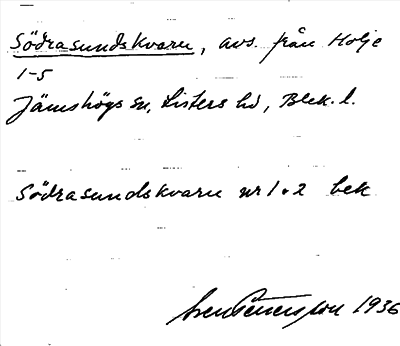 Södrasundskvarn, avs. från Holje
1-5
Jämshögs sn, Listers hd, Blek. l.
Södrasundskvarn nr 1 o 2 bek
Sven Pettersson 1936